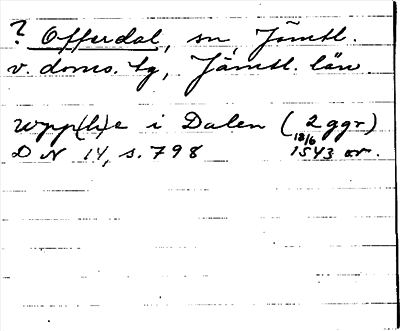 ? Offerdal, sn, Jämtl.
v. doms. tg, Jämtl. län
wpp(h)e i Dalen (2 ggr)
DN 14, s. 798 18/6 1543 or.